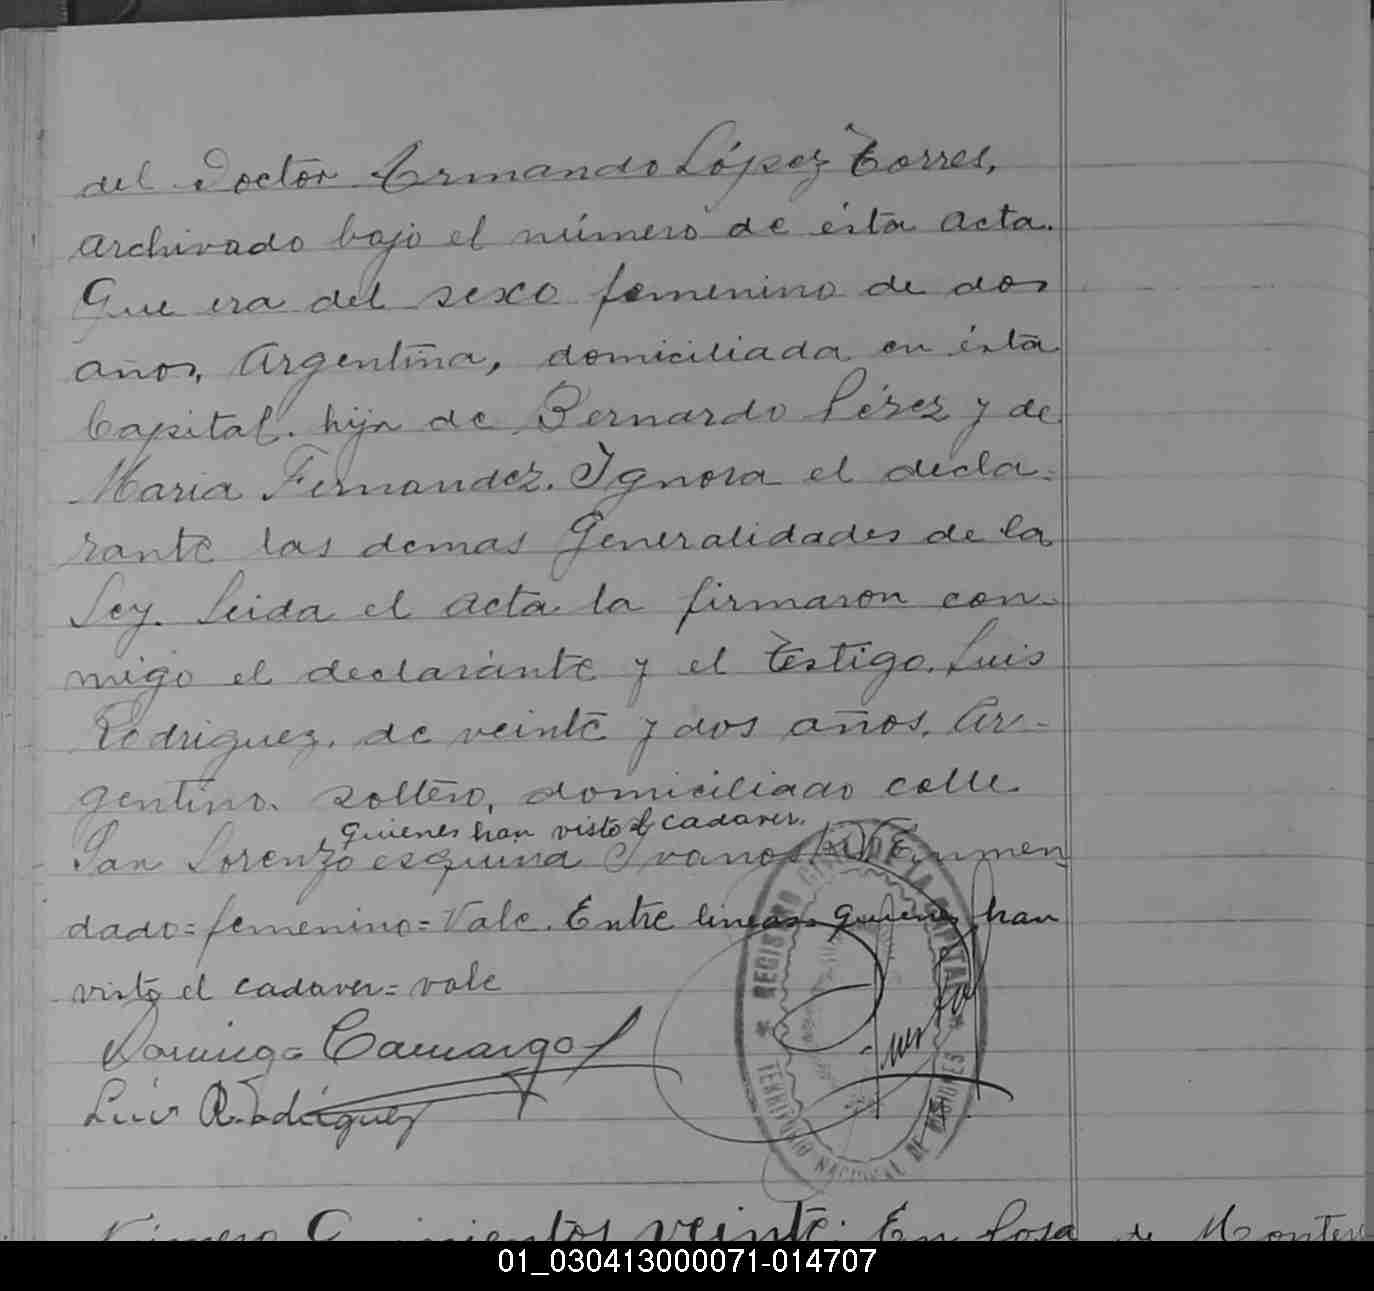 del Doctor Armando López Torres,
archivado bajo el número de ésta acta.
Que era del sexo femenino de dos
años, Argentina, domiciliada en ésta
Capital. hija de Bernardo Pérez y de
Maria Fernandez. Ignora el decla-
rante las demas Generalidades de la
Ley. Leida el acta la firmaron con-
migo el declarante y el testigo. Luis
Rodriguez. de veinte y dos años. Ar-
gentino. soltero, domiciliado calle
quienes han visto el cadaver.
San Lorenzo esquina
dado=femenino=Vale. Entre lineas=quienes han
visto el cadaver=vale
Domingo Camargo
Luis Rodriguez
REGISTRO CIVIL DE LA CAPITAL
TERRITORIO NACIONAL DE MISIONES
Número Quinientos veinte. En Posa
01_030413000071-014707